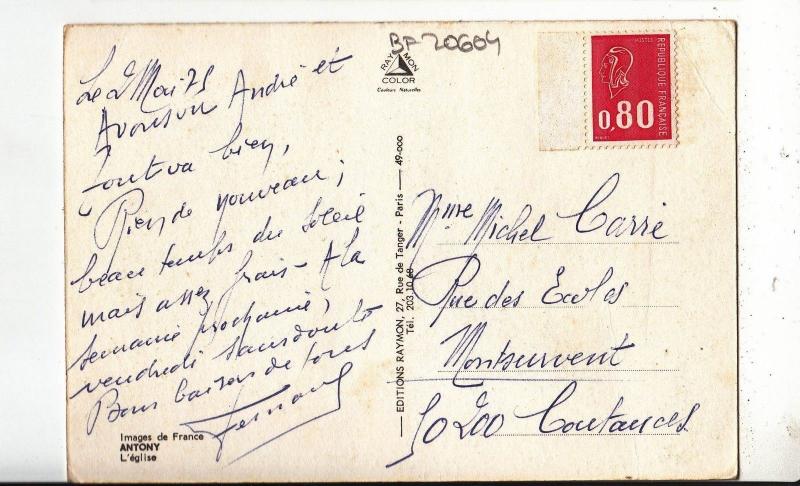 BF-20604
RAYMON
COLOR
Couleurs Naturelles
POSTES
REPUBLIQUE FRANÇAISE
0,80
Le 2 Mai 75
André et
Tout va bien,
Rien de nouveau,
beau temps du soleil
mais assez frais - A la
semaine prochaine,
vendredi sans doute
Bons baisers de tous
Fernand
Images de France
ANTONY
L'église
EDITIONS RAYMON, 27, Rue de Tanger - Paris — 49-000
Tél. 203.10.68
Mme Michel Carré
Rue des Ecoles
Montsurvent
50200 Coutances